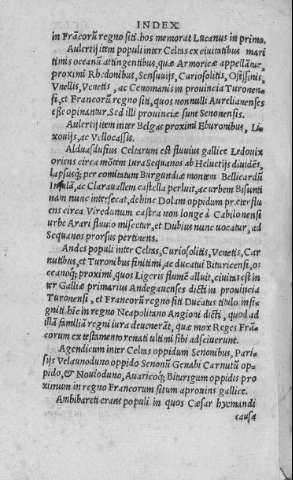 INDEX
in Frãcorũ regno siti. hos memorat Lucanus in primo.
Aulerij item populi inter Celtas ex ciuitatibus mari
timis oceanũ attingentibus, quæ Armoricæ appellãtur,
proximi Rhedonibus, Sensuuijs, Curiosolitis, Osissinis,
Vnellis, Venetis, ac Cenomanis in prouincia Turonen-
si, et Francorũ regno siti, quos nonnulli Aurelianenses
esse opinantur. Sed illi prouinciæ sunt Senonensis.
Aulerij item inter Belgas proximi Eburonibus, Li-
xouijs, ac Vellocassis.
Alduasdusius Celtarum est fluuius gallice Lrdouix
oriens circa mõtem Iura Sequanos ab Heluetijs diuidẽs,
lapsusq́; per comitatum Burgundiæ montem Bellicardũ
Insulã, ac Clarauallem castella perluit, ac urbem Bisunti
nam nunc intersecat, dehinc Dolam oppidum præter flu
ens circa Viredunum castra non longe à Cabilonensi
urbe Arari fluuio miscetur, et Dubius nunc uocatur, ad
Sequanos prorsus pertinens.
Andes populi inter Celtas, Curiosolitis, Venetis, Car
nutibus, et Turonibus finitimi, ac ducatui Bituricensi, os
ceanoq́; proximi, quos Ligeris flumẽ alluit, ciuitas est in
ter Galliæ primarius Andegauenses dicti in prouincia
Turonensi, et Francorũ regno siti Ducatus titulo insi=
gniti. hĩc in regno Neapolitano Angioni dicti, quod ad
illã familiã regni iura deuenerãt, quæ mox Reges Frã
corum ex testamento renati ultimi sibi adsciuerunt.
Agendicum inter Celtas oppidum Senonibus, Pari-
sijs Velaunoduno oppido Senonũ Genabi Carnutũ op-
pido, & Nouioduno, Auaricoq́; Biturigum oppidis pro
ximum in regno Francorum situm aprouins gallice.
Ambibareti erant populi in quos Cæsar hyemandi
causa